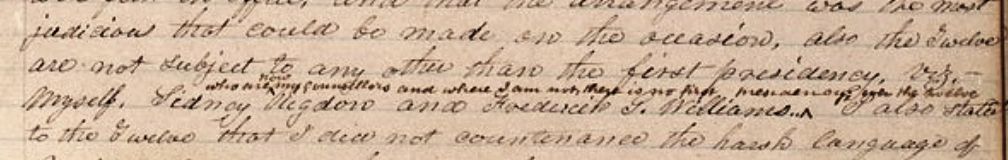 that the arrangement was the most
judicious that could be made on the occasion, also the Twelve
are not subject to any other than the first presidency, viz.—
now
who are my councillors and where I am not, there is no first presidency over the Twelve
Myself. Sidney Rigdon and Frederick G. Williams.. I also stated
to the Twelve that I did not countenance the harsh language of